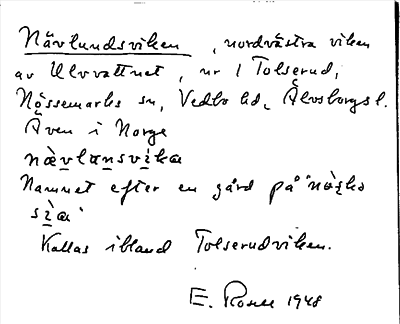 Nävlundsviken, nordvästra viken
av Ulvvattnet, nr 1 Tolserud,
Nössemarks sn, Vedbo hd, Älvsborgs l.
Även i Norge
nævlansvika
Namnet efter en gård på "nåʂko
sia"
Kallas ibland Tolserudviken.
E. 1948